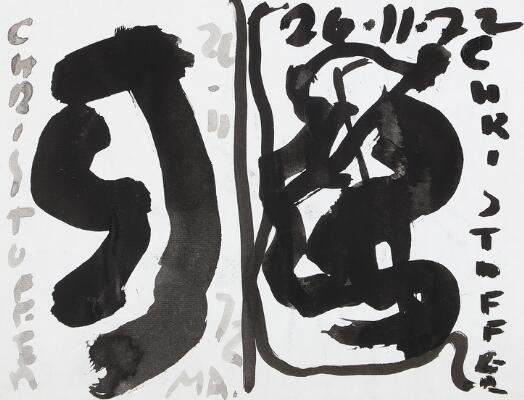 CHRISTOFFER
26
·11
72
MA.
26·11·72
CHRISTOFFER